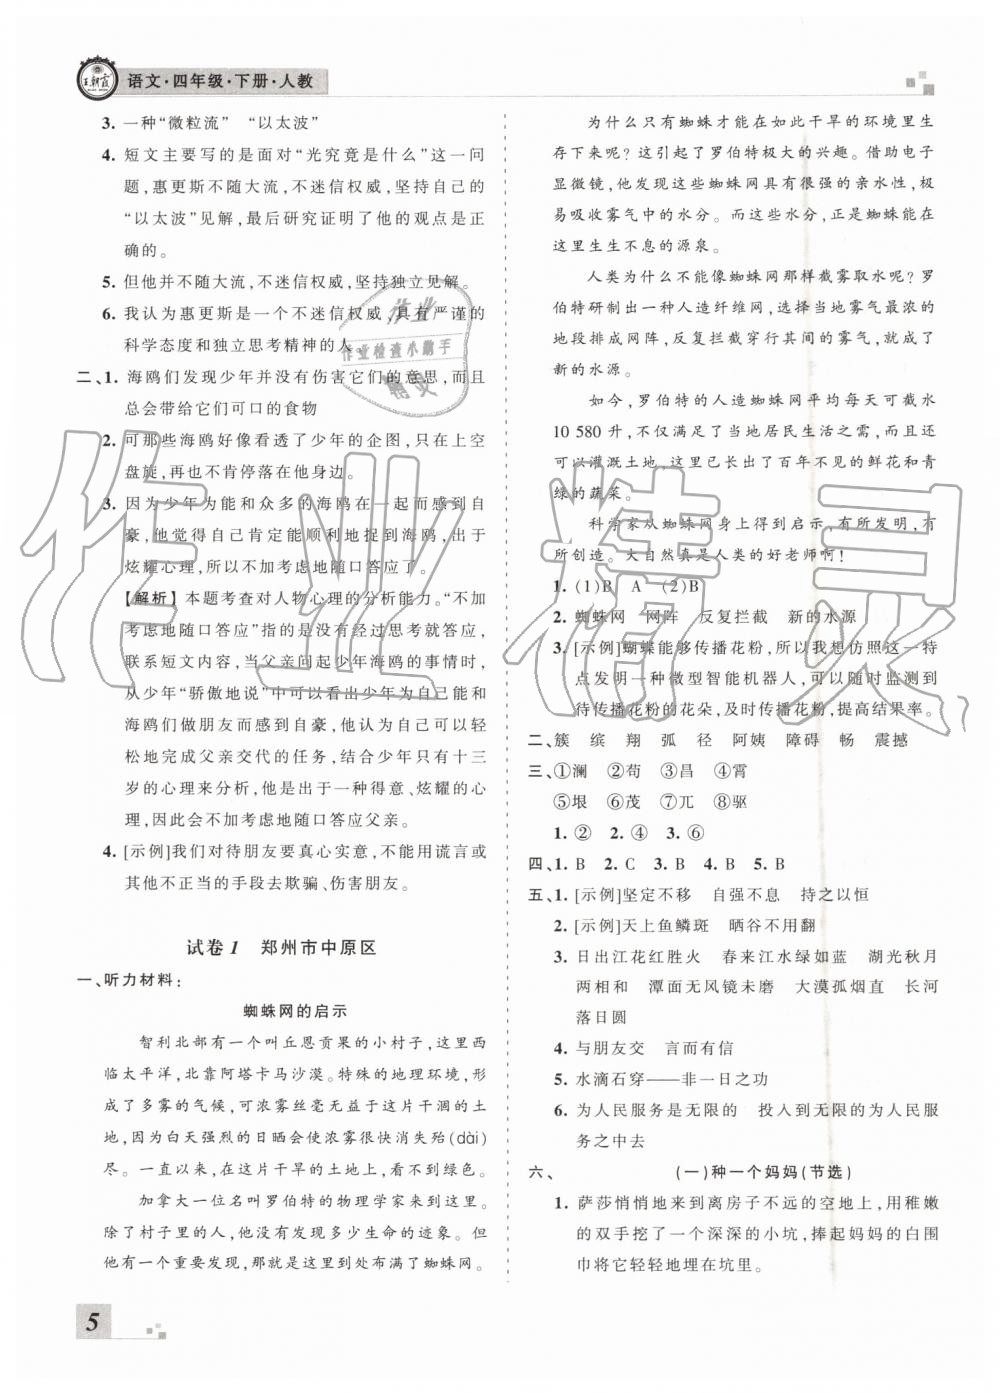 王朝霞
语文·四年级·下册·人教
3. 一种“微粒流” “以太波”
4. 短文主要写的是面对“光究竟是什么”这一问
题,惠更斯不随大流,不迷信权威,坚持自己的
“以太波”见解,最后研究证明了他的观点是正
确的。
5. 但他并不随大流,不迷信权威,坚持独立见解。
6. 我认为惠更斯是一个不迷信权威,具有严谨的
科学态度和独立思考精神的人。
二、1. 海鸥们发现少年并没有伤害它们的意思,而且
总会带给它们可口的食物
2. 可那些海鸥好像看透了少年的企图,只在上空
盘旋,再也不肯停落在他身边。
3. 因为少年为能和众多的海鸥在一起而感到自
豪,他觉得自己肯定能顺利地捉到海鸥,出于
炫耀心理,所以不加考虑地随口答应了。
【解析】本题考查对人物心理的分析能力。“不加
考虑地随口答应”指的是没有经过思考就答应,
联系短文内容,当父亲问起少年海鸥的事情时,
从少年“骄傲地说”中可以看出少年对能够和
海鸥们做朋友而感到自豪,他认为自己可以轻
松地完成父亲交代的任务,结合少年只有十三
岁的心理来分析,他是出于一种得意、炫耀的心
理,因此会不加考虑地随口答应父亲。
4. [示例]我们对待朋友要真心实意,不能用谎言或
其他不正当的手段去欺骗、伤害朋友。
试卷1 郑州市中原区
一、听力材料:
蜘蛛网的启示
智利北部有一个叫丘恩贡果的小村子,这里西
临太平洋,北靠阿塔卡马沙漠。特殊的地理环境,形
成了多雾的气候,可浓雾丝毫无益于这片干涸的土
地,因为白天强烈的日晒会使浓雾很快消失殆(dài)
尽。一直以来,在这片干旱的土地上,看不到绿色。
加拿大一位名叫罗伯特的物理学家来到这里。
除了村子里的人,他没有发现多少生命的迹象。但他
有一个重要发现,那就是这里到处布满了蜘蛛网。
为什么只有蜘蛛才能在如此干旱的环境里生
存下来呢?这引起了罗伯特极大的兴趣。借助电子
显微镜,他发现这些蜘蛛网具有很强的亲水性,极
易吸收雾气中的水分。而这些水分,正是蜘蛛能在
这里生生不息的源泉。
人类为什么不能像蜘蛛网那样截雾取水呢?罗
伯特研制出一种人造纤维网,选择当地雾气最浓的
地段排成网阵,反复拦截穿行其间的雾气,就成了
新的水源。
如今,罗伯特的人造蜘蛛网平均每天可截水
10 580升,不仅满足了当地居民生活之需,而且还
可以灌溉土地,这里长出了百年不见的鲜花和青
绿的蔬菜。
科学家从蜘蛛网身上得到启示,有所发明,有
所创造。大自然真是人类的好老师啊!
1. (1)B A (2)B
2. 蜘蛛网 网阵 反复拦截 新的水源
3. [示例]蝴蝶能够传播花粉,所以我想仿照这一特
点发明一种微型智能机器人,可以随时监测到
待传播花粉的花朵,及时传播花粉,提高结果率。
二、簇 缤 翔 弧 径 阿姨 障碍 畅 震撼
三、①澜 ②苟 ③昌 ④霄
⑤垠 ⑥茂 ⑦兀 ⑧驱
1. ② 2. ④ 3. ⑥
四、1. B 2. C 3. B 4. B 5. B
五、1. [示例]坚定不移 自强不息 持之以恒
2. [示例]天上鱼鳞斑 晒谷不用翻
3. 日出江花红胜火 春来江水绿如蓝 湖光秋月
两相和 潭面无风镜未磨 大漠孤烟直 长河
落日圆
4. 与朋友交 言而有信
5. 水滴石穿——非一日之功
6. 为人民服务是无限的 投入到无限的为人民服
务之中去
六、 (一)种一个妈妈(节选)
1. 萨莎悄悄地来到离房子不远的空地上,用稚嫩
的双手挖了一个深深的小坑,捧起妈妈的白围
巾将它轻轻地埋在坑里。
5
作业
作业检查小助手
精灵
作业精灵